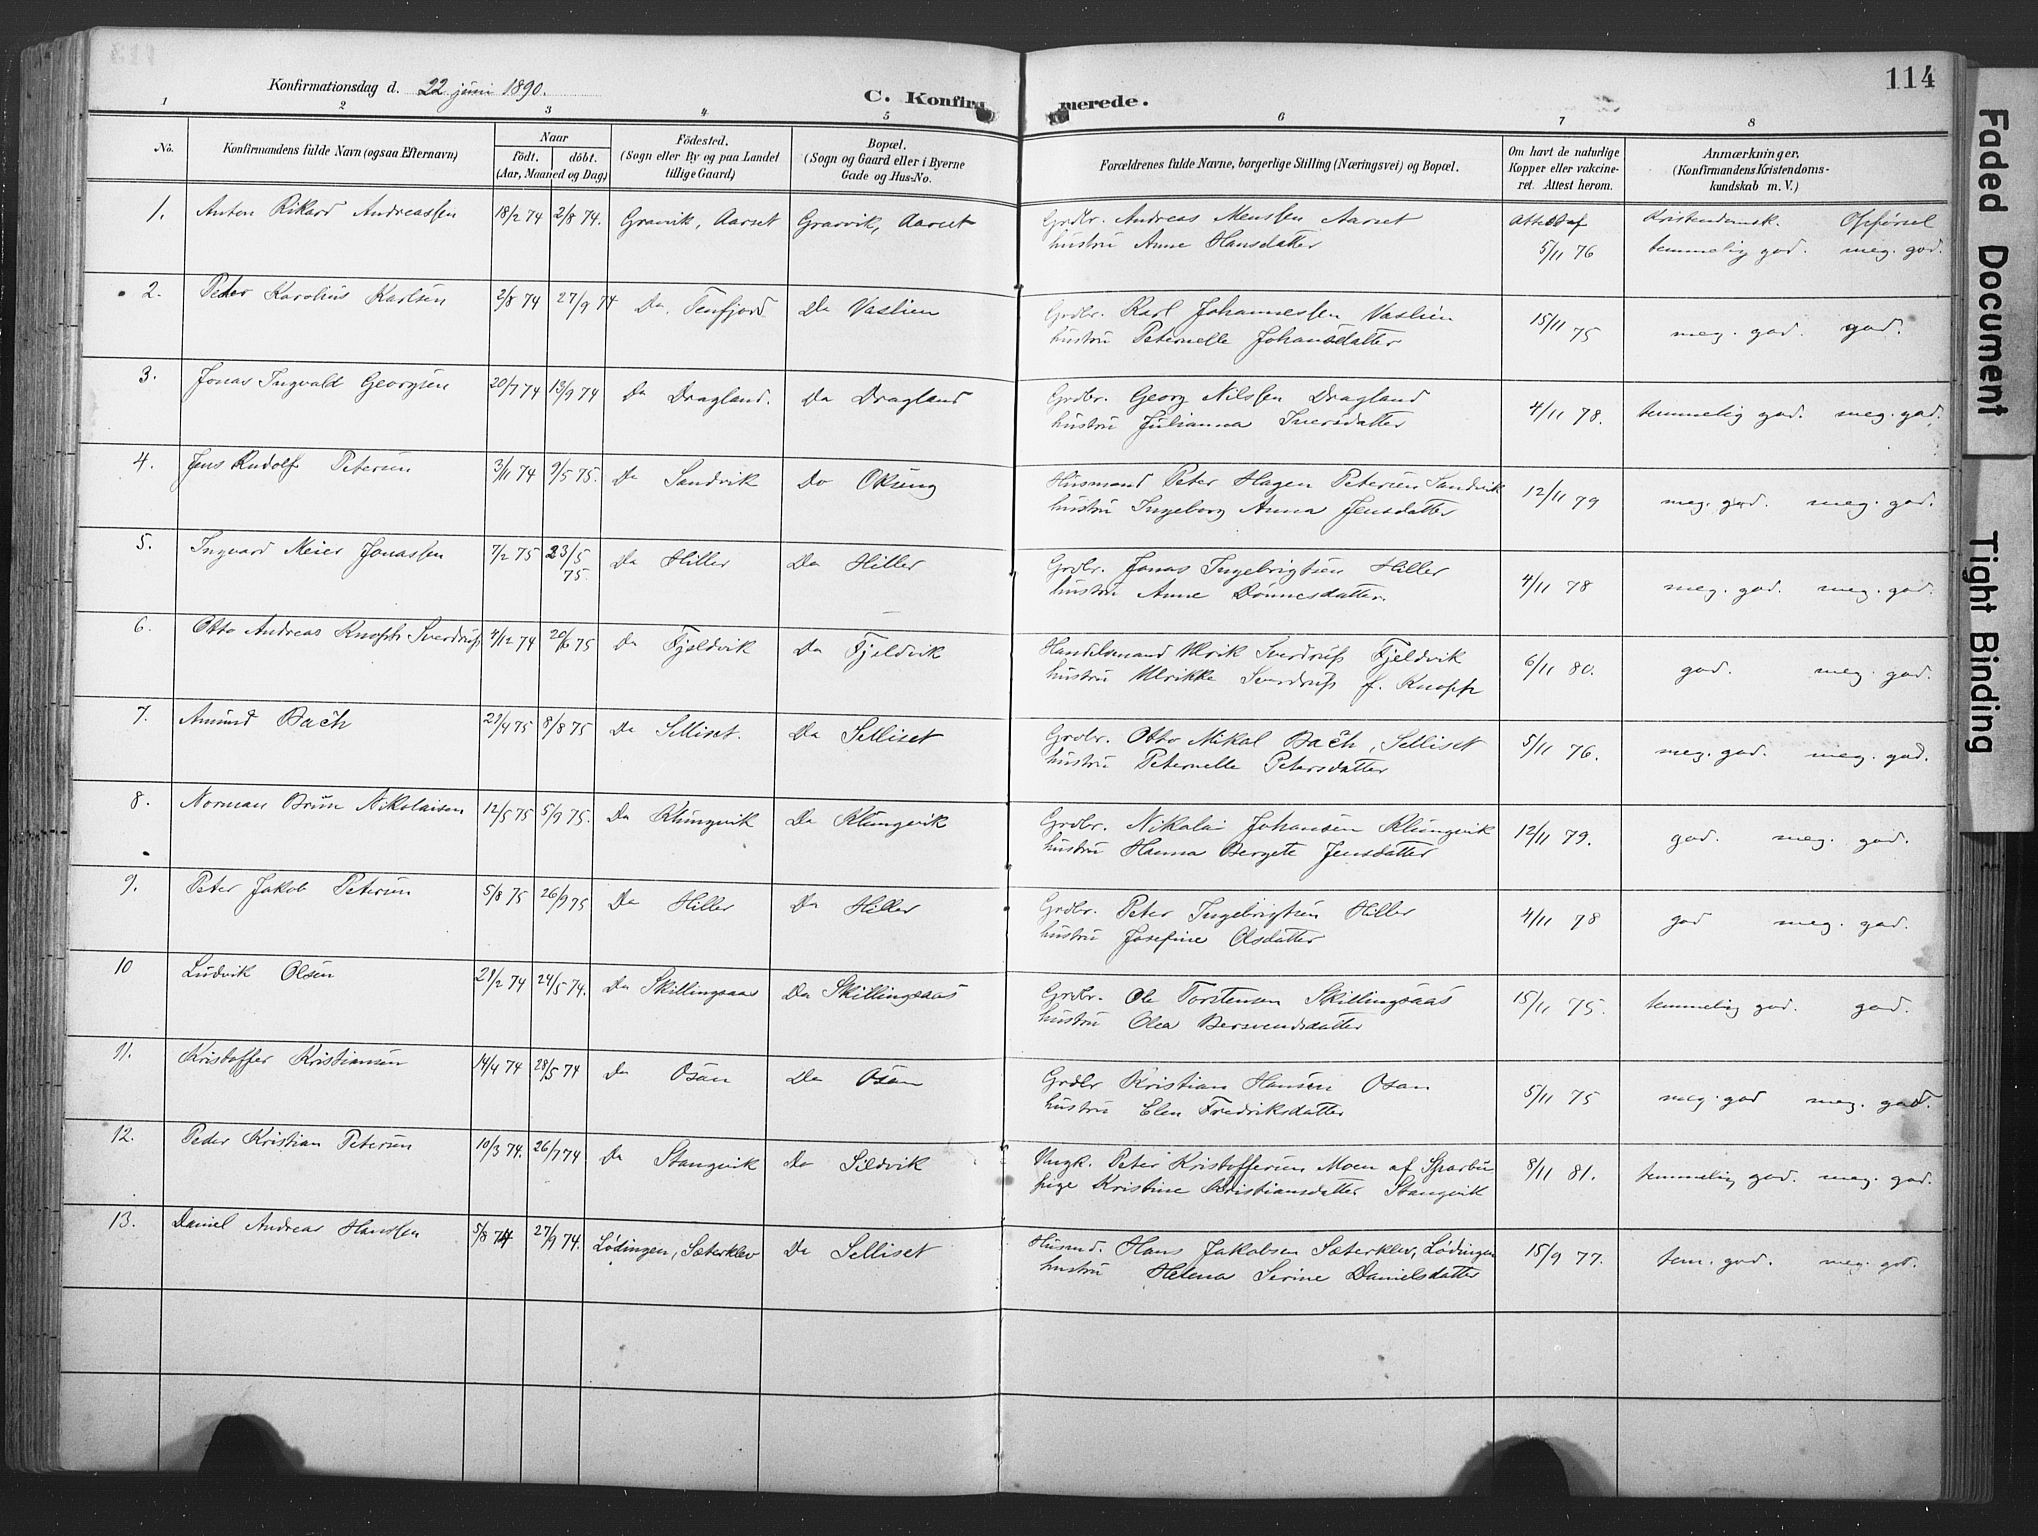 114
Konfirmationsdag d. 22 juni 1890.
C. Konfir merede.
1 2 3 4 5 6 7 8
No.
Konfirmandens fulde Navn (ogsaa Efternavn)
Naar
födt. döbt.
(Aar, Maaned og Dag)
Födested.
(Sogn eller By og paa Landet
tillige Gaard)
Bopæl.
(Sogn og Gaard eller i Byerne
Gade og Hus-No.
Forældrenes fulde Navne, borgerlige Stilling (Næringsvei) og Bopæl.
Om havt de naturlige
Kopper eller vakcine-
ret. Attest herom.
Anmærkninger.
(Konfirmandens Kristendoms-
kundskab m. V.)
1. Anton Rikard Andreassen 18/2 74 2/8 74. Gravik, Aarset Gravvik, Aarset Grdbr. Andreas Monssen Aarset Attest af Kristendomsk. Opførsel
hustru Anne Hansdatter 5/11 76 temmelig god. meg. god.
2. Peder Karolius Karlsen 2/8 74 27/9 74 Do. Tenfjord Do Vaslien Grdbr. Karl Johannessen Vaslien 15/11 75 meg. god god.
hustru Peternelle Johansdatter
3. Jonas Ingvald Georgsen 20/7 74 13/9 74 Do Dragland. Do Dragland Grdbr. Georg Nilssen Dragland 4/11 78. temmelig god. meg. god.
hustru Julianna Iversdatter
4. Jens Rudolf Petersen 3/11 74 9/5 75. Do Sandvik Do Okseng Husmand Peter Hagen Petersen Sandvik 12/11 79 meg. god. meg. god.
hustru Ingeborg Anna Jensdatter
5. Ingvard Meier Jonassen 7/2 75 23/5 75. Do Hiller Do Hiller Grdbr. Jonas Ingebrigtsen Hiller 4/11 78 meg. god. meg. god.
hustru Anne Dönnesdatter.
6. Otto Andreas Knoph Sverdrup 4/12 74 20/6 75 Do Fjeldvik Do Fjeldvik Handelsmand Ulrik Sverdrup Fjeldvik 6/11 80. god. meg. god.
hustru Ulrikke Sverdrup f. Knoph
7. Amund Bach 29/4 75 8/8 75 Do Selliset. Do Selliset Grdbr. Otto Nikol Bach, Selliset 5/11 76. meg. god. meg. god.
hustru Peternelle Petersdatter
8. Norman Brun Nikolaisen 12/5 75 5/9 75. Do Klungvik Do Klungvik Grdbr. Nikolai Johansen Klungvik 12/11 79. god. meg. god.
hustru Hanna Bergete Jensdatter
9. Peter Jakob Petersen 5/8 75 26/9 75 Do Hiller Do Hiller Grdbr. Peter Ingebrigtsen Hiller 4/11 78 god meg. god.
hustru Josefine Olsdatter
10 Ludvik Olsen 21/2 74 24/5 74. Do Skillingsaas Do Skillingsaas Grdbr. Ole Torstensen Skillingsaas 15/11 75. temmelig god. god.
hustru Olea Bersvendsdatter
11. Kristoffer Kristiansen 14/4 74 28/5 74 Do Osan Do Osan Grdbr Kristian Hansen Osan 5/11 75 meg. god meg. god.
hustru Elen Fredriksdatter
12. Peder Kristian Petersen 10/3 74. 26/7 74 Do Stangvik Do Sildvik Ungk. Peter Kristoffersen Moen af Sparbu 8/11 81. temmelig god. meg. god.
pige Kristine Kristiansdatter Stangvik
13. Daniel Andreas Hanssen 5/8 74 27/9 74. Lødingen, Sæterklev Do Selliset Husmd. Hans Jakobsen Sæterklev, Lødingen 15/9 77. tem. god. meg. god.
hustru Helena Serine Danielsdatter
Faded Document
Tight Binding